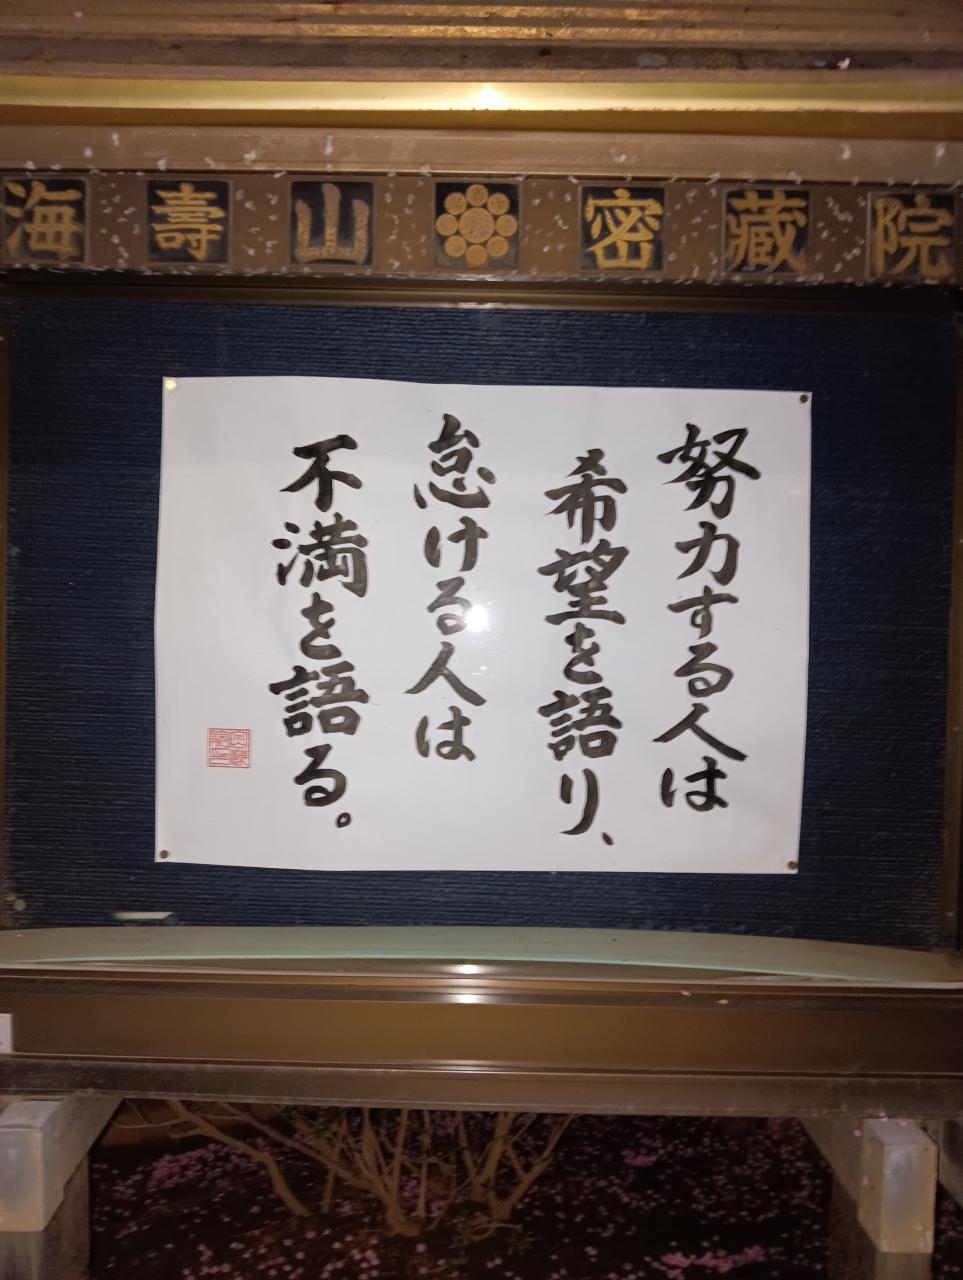 海壽山 密藏院
努力する人は
希望を語り、
怠ける人は
不満を語る。